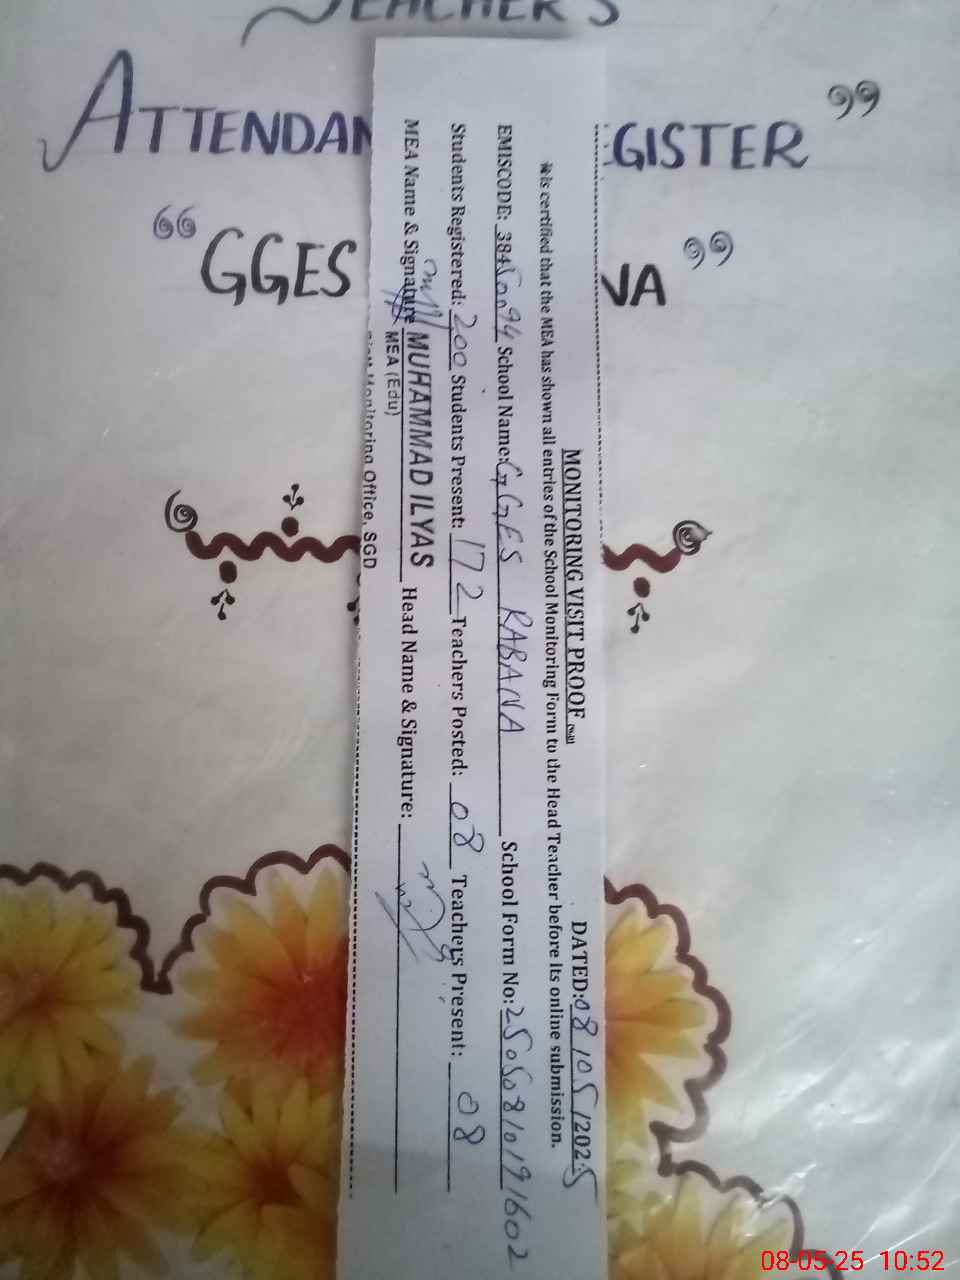 TEACHER'S
ATTENDAN
EGISTER"
"GGES
NA"
MONITORING VISIT PROOF
DATED: 08/05/2025
It is certified that the MEA has shown all entries of the School Monitoring Form to the Head Teacher before its online submission.
EMISCODE: 38450094 School Name: GGES RABANA School Form No: 25050810191602
Students Registered: 200 Students Present: 172 Teachers Posted: 08 Teachers Present: 08
MEA Name & Signature MUHAMMAD ILYAS Head Name & Signature:
MEA (Edu)
Monitoring Office, SGD
08-05-25 10:52